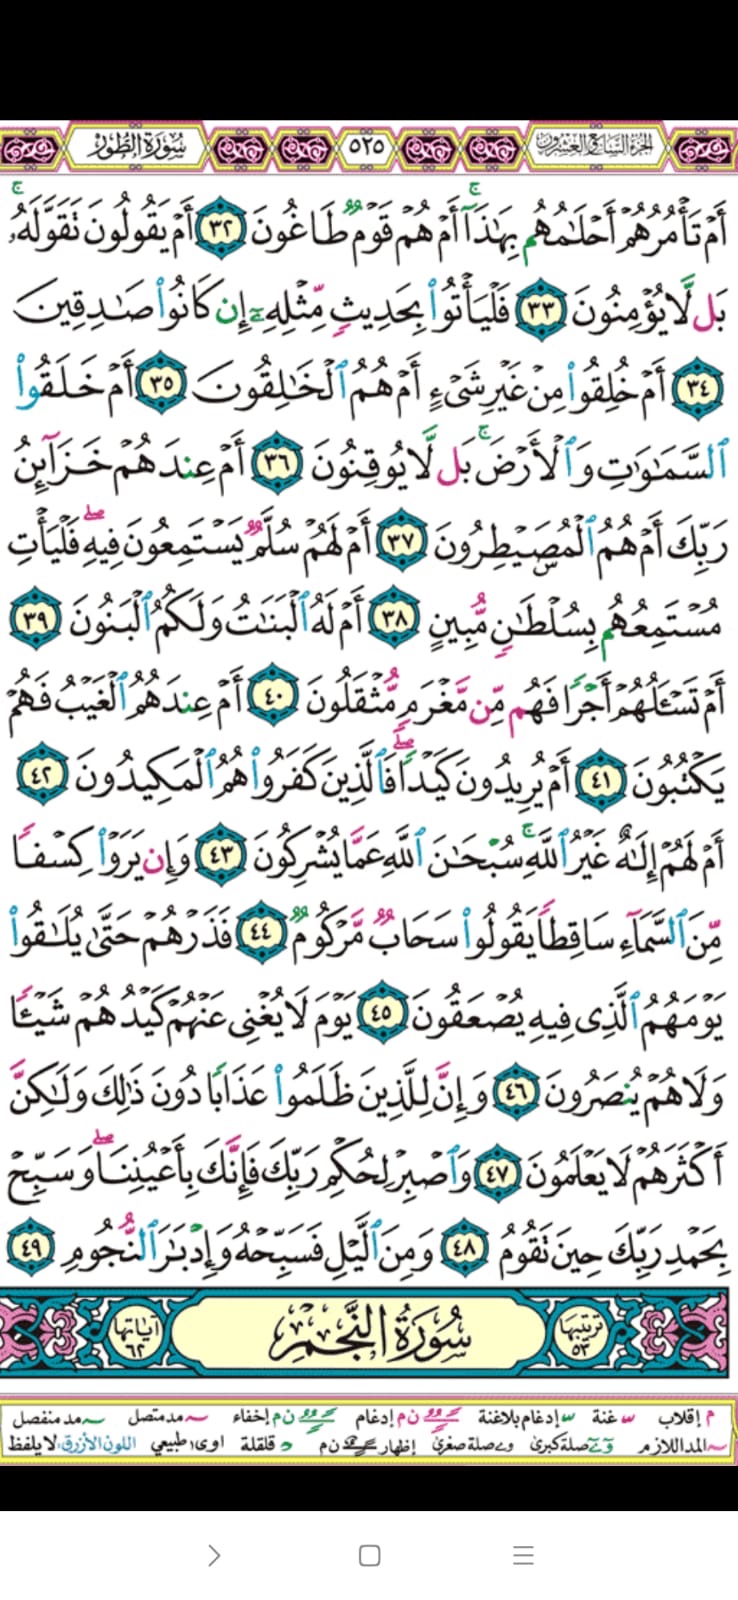 سُورَةُ الطُّورِ ٥٢٥ الجُزْءُ السَّابِعُ وَالعِشْرُونَ
أَمْ تَأْمُرُهُمْ أَحْلَٰمُهُم بِهَٰذَآ ۚ أَمْ هُمْ قَوْمٌ طَاغُونَ ٣٢ أَمْ يَقُولُونَ تَقَوَّلَهُۥ ۚ
بَل لَّا يُؤْمِنُونَ ٣٣ فَلْيَأْتُوا۟ بِحَدِيثٍ مِّثْلِهِۦٓ إِن كَانُوا۟ صَٰدِقِينَ
٣٤ أَمْ خُلِقُوا۟ مِنْ غَيْرِ شَىْءٍ أَمْ هُمُ ٱلْخَٰلِقُونَ ٣٥ أَمْ خَلَقُوا۟
ٱلسَّمَٰوَٰتِ وَٱلْأَرْضَ ۚ بَل لَّا يُوقِنُونَ ٣٦ أَمْ عِندَهُمْ خَزَآئِنُ
رَبِّكَ أَمْ هُمُ ٱلْمُصَۣيْطِرُونَ ٣٧ أَمْ لَهُمْ سُلَّمٌ يَسْتَمِعُونَ فِيهِ ۖ فَلْيَأْتِ
مُسْتَمِعُهُم بِسُلْطَٰنٍ مُّبِينٍ ٣٨ أَمْ لَهُ ٱلْبَنَٰتُ وَلَكُمُ ٱلْبَنُونَ ٣٩
أَمْ تَسْـَٔلُهُمْ أَجْرًا فَهُم مِّن مَّغْرَمٍ مُّثْقَلُونَ ٤٠ أَمْ عِندَهُمُ ٱلْغَيْبُ فَهُمْ
يَكْتُبُونَ ٤١ أَمْ يُرِيدُونَ كَيْدًا ۖ فَٱلَّذِينَ كَفَرُوا۟ هُمُ ٱلْمَكِيدُونَ ٤٢
أَمْ لَهُمْ إِلَٰهٌ غَيْرُ ٱللَّهِ ۚ سُبْحَٰنَ ٱللَّهِ عَمَّا يُشْرِكُونَ ٤٣ وَإِن يَرَوْا۟ كِسْفًا
مِّنَ ٱلسَّمَآءِ سَاقِطًا يَقُولُوا۟ سَحَابٌ مَّرْكُومٌ ٤٤ فَذَرْهُمْ حَتَّىٰ يُلَٰقُوا۟
يَوْمَهُمُ ٱلَّذِى فِيهِ يُصْعَقُونَ ٤٥ يَوْمَ لَا يُغْنِى عَنْهُمْ كَيْدُهُمْ شَيْـًٔا
وَلَا هُمْ يُنصَرُونَ ٤٦ وَإِنَّ لِلَّذِينَ ظَلَمُوا۟ عَذَابًا دُونَ ذَٰلِكَ وَلَٰكِنَّ
أَكْثَرَهُمْ لَا يَعْلَمُونَ ٤٧ وَٱصْبِرْ لِحُكْمِ رَبِّكَ فَإِنَّكَ بِأَعْيُنِنَا ۖ وَسَبِّحْ
بِحَمْدِ رَبِّكَ حِينَ تَقُومُ ٤٨ وَمِنَ ٱلَّيْلِ فَسَبِّحْهُ وَإِدْبَٰرَ ٱلنُّجُومِ ٤٩
ترتيبها ٥٣ سُورَةُ النَّجْمِ آياتها ٦٢
م إقلاب غنة إدغام بلاغنة ن م إدغام ن م إخفاء مد متصل مد منفصل
المد اللازم صلة كبرى صلة صغرى إظهار ن م قلقلة اوى طبيعي اللون الأزرق: لا يلفظ